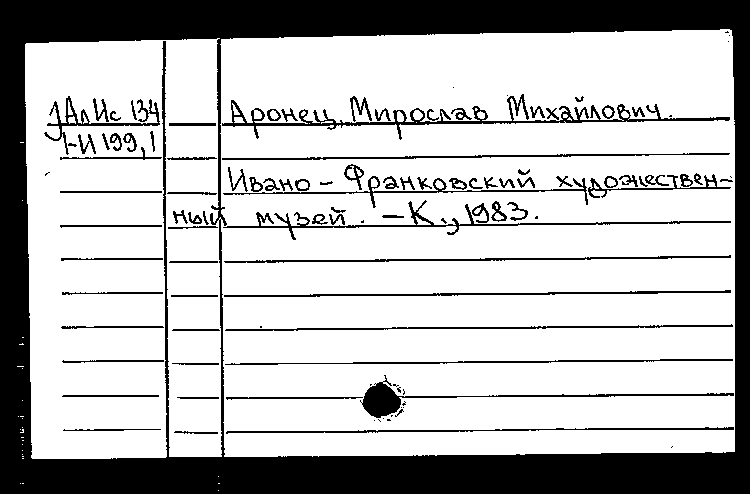 јАлИс 134
1-И 199,1
Аронец, Мирослав Михайлович.
Ивано-Франковский художествен-
ный музей. - К., 1983.